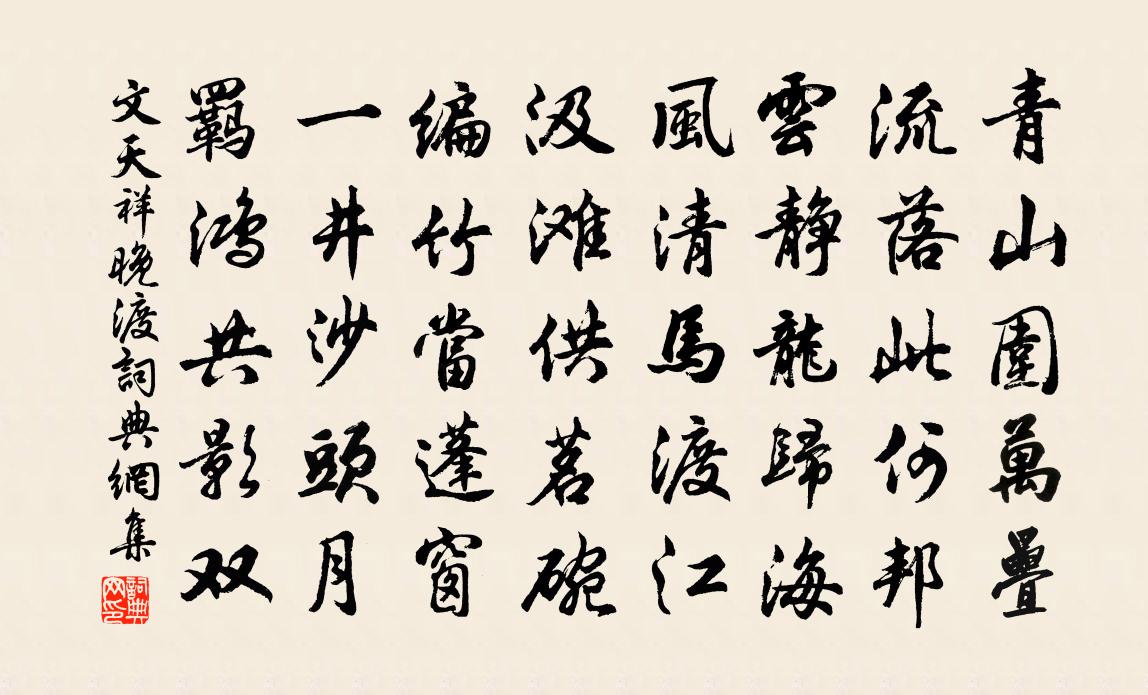 青山圍萬疊
流落此何邦
雲靜龍歸海
風清馬渡江
汲滩供茗碗
编竹當蓬窗
一井沙頭月
羁鴻共影双
文天祥晚渡詞典網集
詞典网印